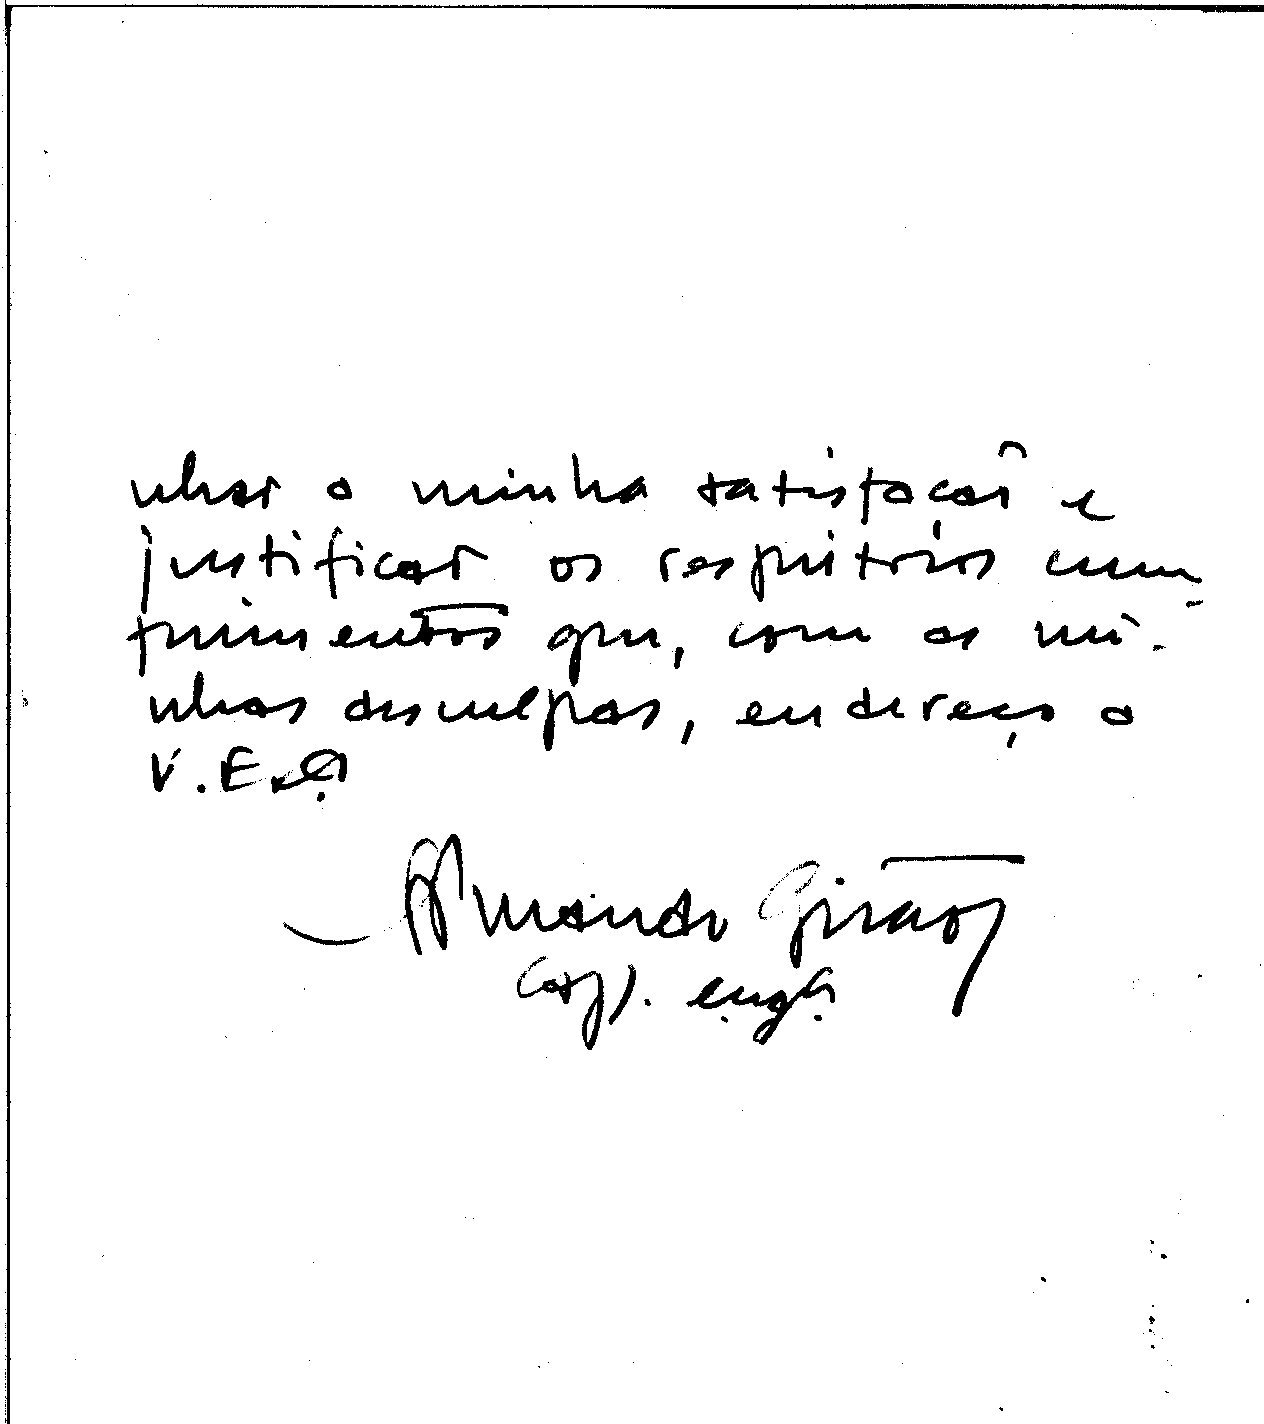 nhar a minha satisfação e
justificar os respeitosos cum
primentos que, com as mi-
nhas desculpas, endereço a
V. Exª.
Armando Girão
engº.